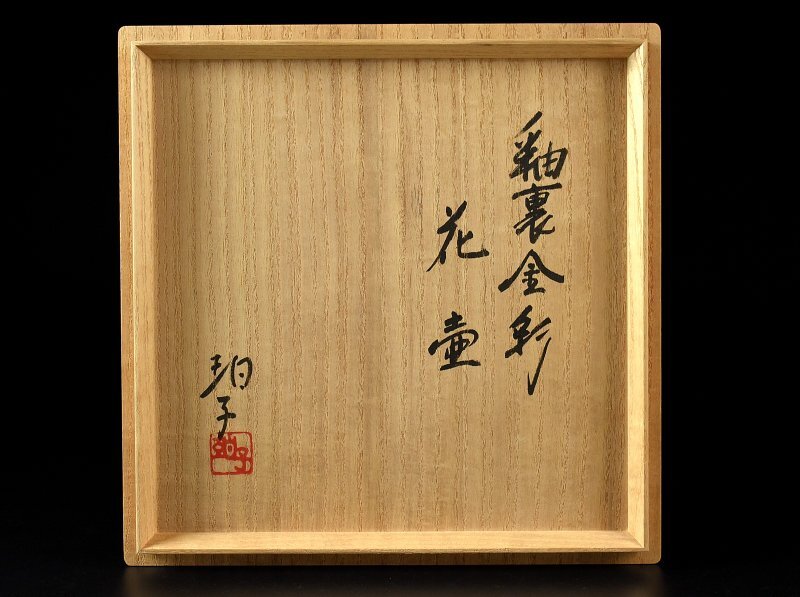 釉裏金彩
花壷
珀子